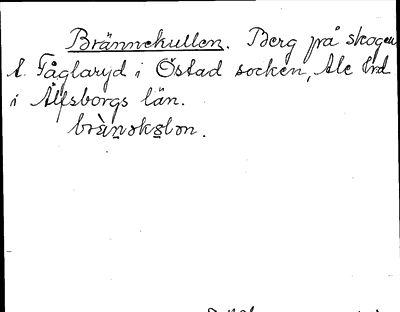 Brännekullen. Berg på skogen
t. Fåglaryd i Östad socken, Ale hrd
i Älfsborgs län.